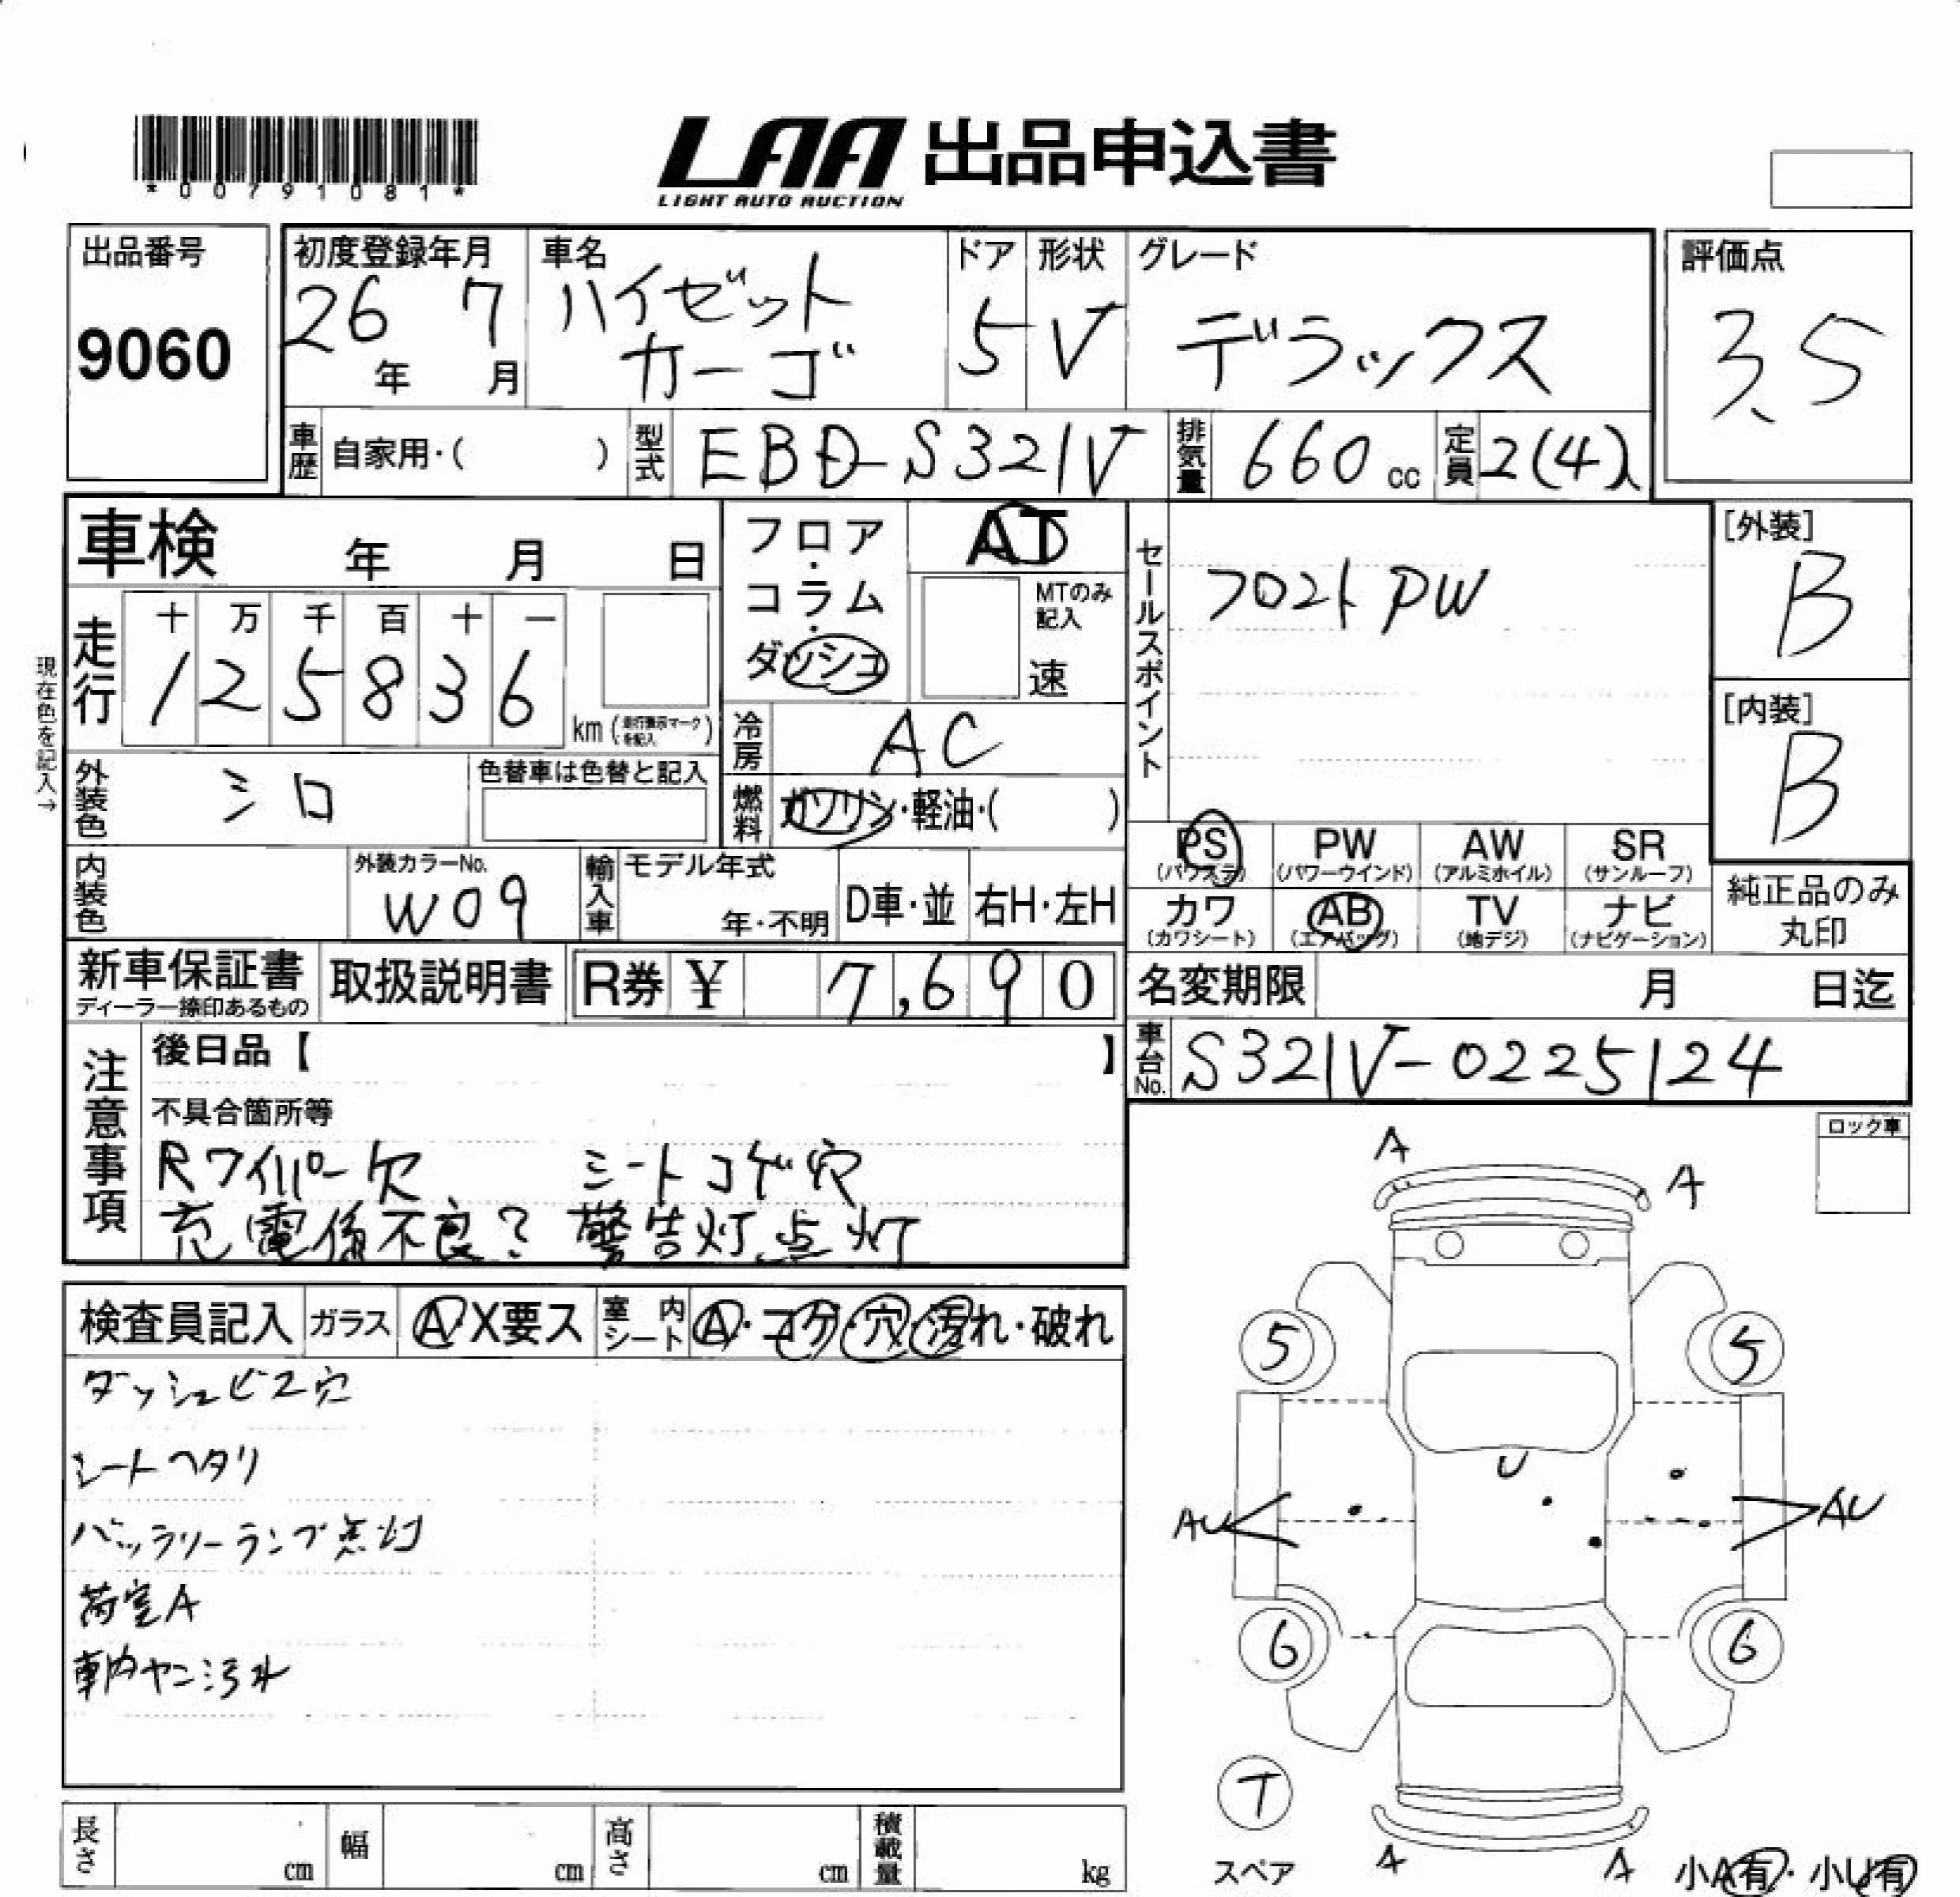 *00791081*
LAA 出品申込書
LIGHT AUTO AUCTION
出品番号
9060
初度登録年月
26年 7月
車名
ハイゼット
カーゴ
ドア
5
形状
V
グレード
デラックス
評価点
3.5
車歴 自家用・( )
型式 EBD-S321V
排気量 660 cc
定員 2(4)人
車検 年 月 日
フロア・
コラム・
ダッシュ
AT
MTのみ
記入
速
セールスポイント
フロントPW
[外装]
B
[内装]
B
現在色を記入→
走行
十 万 千 百 十 一
1 2 5 8 3 6
km(走行表示マークを記入)
冷房 AC
外装色 シロ
色替車は色替と記入
燃料 ガソリン・軽油・( )
内装色
外装カラーNo.
W09
輸入車
モデル年式
年・不明
D車・並
右H・左H
PS
(パワステ)
PW
(パワーウインド)
AW
(アルミホイル)
SR
(サンルーフ)
カワ
(カワシート)
AB
(エアバッグ)
TV
(地デジ)
ナビ
(ナビゲーション)
純正品のみ
丸印
新車保証書
ディーラー捺印あるもの
取扱説明書
R券 ¥ 7,690
名変期限 月 日迄
車台No. S321V-0225124
注意事項
後日品【 】
不具合箇所等
Rワイパー欠 シートコゲ穴
充電係不良? 警告灯点灯
ロック車
検査員記入
ガラス A・X要ス
室内シート A・コゲ・穴・汚れ・破れ
ダッシュビス穴
シートヘタリ
バッテリーランプ点灯
荷室A
車内ヤニ汚れ
A
A
5
5
U
AU
AU
6
6
T
スペア
A
A
小A有・小U有
長さ cm
幅 cm
高さ cm
積載量 kg